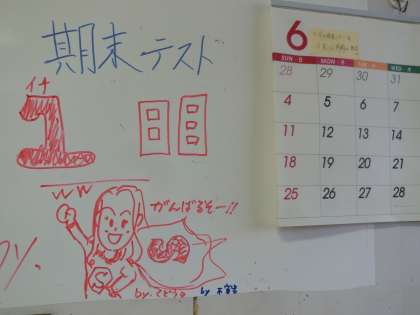 期末テスト
イチ
1日目
がんばるぞー!!
by.
by
6
SUN 日 MON 月 TUE 火 WED 水
28 29 30 31
4 5 6 7
11 12 13 14
18 19 20 21
25 26 27 28